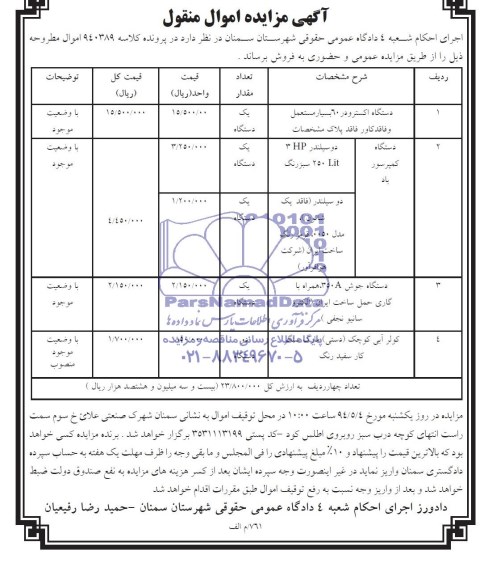 آگهی مزایده اموال منقول
اجرای احکام شعبه ۴ دادگاه عمومی حقوقی شهرستان سمنان در نظر دارد در پرونده کلاسه ۹۴۰۳۸۹ اموال مطروحه
ذیل را از طریق مزایده عمومی و حضوری به فروش برساند .
ردیف شرح مشخصات تعداد مقدار قیمت واحد(ریال) قیمت کل (ریال) توضیحات
۱ دستگاه اکسترودر۶۰بسیارمستعمل وفاقدکاور فاقد پلاک مشخصات یک دستگاه ۱۵/۵۰۰/۰۰ ۱۵/۵۰۰/۰۰۰ با وضعیت موجود
۲ دستگاه کمپرسور باد دوسیلندر ۳ HP ۲۵۰ Lit سبزرنگ یک دستگاه ۳/۲۵۰/۰۰۰ ۴/۴۵۰/۰۰۰ با وضعیت موجود
دو سیلندر (فاقد یک
مدل
ساخت ایران (شرکت
یک دستگاه ۱/۲۰۰/۰۰۰
۳ دستگاه جوش ۳۵۰A همراه با
گاری حمل ساخت ایران
سانیو نجفی
یک ۲/۱۵۰/۰۰۰ ۲/۱۵۰/۰۰۰ با وضعیت موجود
۴ کولر آبی کوچک (دستی)
کار سفید رنگ
۱/۷۰۰/۰۰۰ با وضعیت موجود منصوب
ParsNamadData
مرکز فرآوری اطلاعات پارس نماد داده ها
پایگاه اطلاع رسانی مناقصه و مزایده
۰۲۱-۸۸۳۴۹۶۷۰-۵
تعداد چهارردیف به ارزش کل ۲۳/۸۰۰/۰۰۰ (بیست و سه میلیون و هشتصد هزار ریال )
مزایده در روز یکشنبه مورخ ۹۴/۵/۴ ساعت ۱۰:۰۰ در محل توقیف اموال به نشانی سمنان شهرک صنعتی علائ خ سوم سمت
راست انتهای کوچه درب سبز روبروی اطلس کود –کد پستی ۳۵۳۱۱۱۳۱۹۹ برگزار خواهد شد . برنده مزایده کسی خواهد
بود که بالاترین قیمت را پیشنهاد و ۱۰٪ مبلغ پیشنهادی را فی المجلس و ما بقی وجه را ظرف مهلت یک هفته به حساب سپرده
دادگستری سمنان واریز نماید در غیر اینصورت وجه سپرده ایشان بعد از کسر هزینه های مزایده به نفع صندوق دولت ضبط
خواهد شد و بعد از واریز وجه نسبت به رفع توقیف اموال طبق مقررات اقدام خواهد شد
دادورز اجرای احکام شعبه ۴ دادگاه عمومی حقوقی شهرستان سمنان –حمید رضا رفیعیان
۷۶۱/م الف